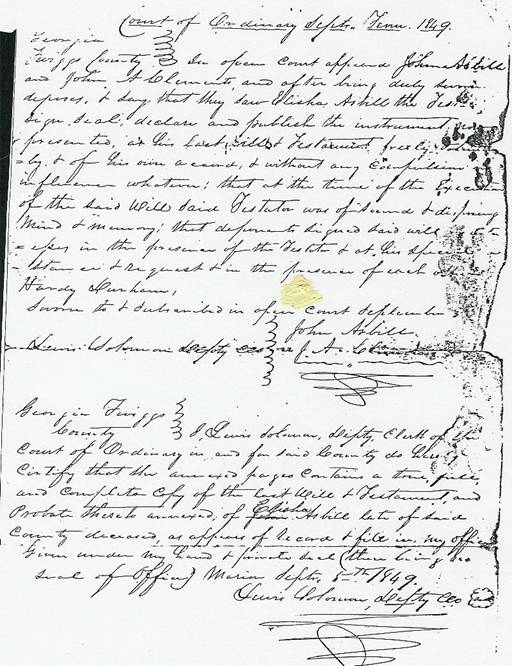 Court of Ordinary Septr. Term. 1849.
Georgia
Twiggs County } In open Court appeared John Asbill
and John A Clements, and after being duly sworn
deposes, & say, that they saw Elisha Asbill the Tes-
sign, seal, declare and publish the instrument
presented, as his last will & Testament, freely,
=ly. & of his own accord, & without any compulsion
influence whatever; that at the time of the
of the said Will said Testator was of sound & disposing
mind & memory; that deponents signed said will
=esses in the presence of the Testator & at his special
stance & request & in the presence of each
Hardy Durham,
Sworn to & subscribed in open Court September
John Asbill.
Lewis Solomon Depty cco J. A. Clements
Georgia Twiggs
County } I, Lewis Solomon, Depty, Clerk of the
Court of Ordinary in and for said County do
Certify that the annexed pages contains a true, full,
and complete Copy of the last Will & Testament, and
Probate thereto annexed, of Elisha Asbill late of said
County deceased, as appears of record & file in my office
Given under my hand & private seal (there being no
seal of Office) Marion Septr. 5th 1849.
Lewis Solomon, Depty cco